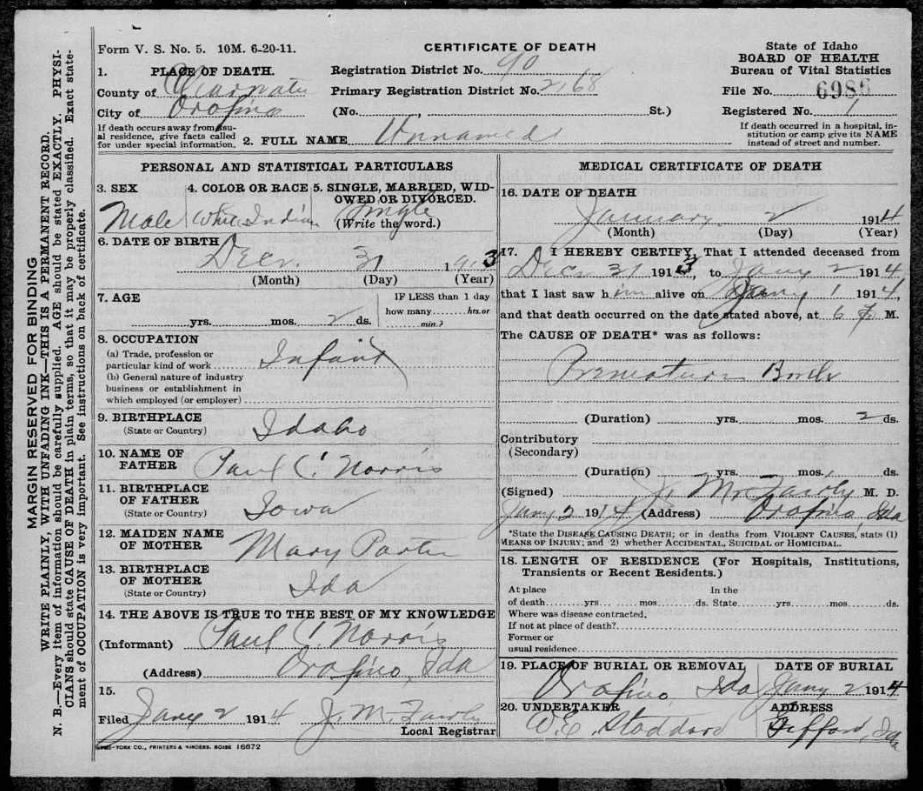 MARGIN RESERVED FOR BINDING
WRITE PLAINLY, WITH UNFADING INK—THIS IS A PERMANENT RECORD.
N. B.—Every item of information should be carefully supplied. AGE should be stated EXACTLY. PHYSI-
CIANS should state CAUSE OF DEATH in plain terms, so that it may be properly classified. Exact state-
ment of OCCUPATION is very important. See instructions on back of certificate.
Form V. S. No. 5. 10M. 6-20-11.
CERTIFICATE OF DEATH
State of Idaho
BOARD OF HEALTH
Bureau of Vital Statistics
1. PLACE OF DEATH.
Registration District No. 90
County of
Primary Registration District No. 2168
File No. 6986
City of Orofino
(No. St.)
Registered No. 1
If death occurs away from usu-
al residence, give facts called
for under special information.
2. FULL NAME Unnamed
If death occurred in a hospital, in-
stitution or camp give its NAME
instead of street and number.
PERSONAL AND STATISTICAL PARTICULARS
3. SEX Male
4. COLOR OR RACE Indian
5. SINGLE, MARRIED, WID-
OWED OR DIVORCED. Single
(Write the word.)
6. DATE OF BIRTH
Decr. 31 1913
(Month) (Day) (Year)
7. AGE
yrs. mos. 2 ds.
IF LESS than 1 day
how many hrs. or
min.?
8. OCCUPATION
(a) Trade, profession or
particular kind of work Infant
(b) General nature of industry
business or establishment in
which employed (or employer)
9. BIRTHPLACE
(State or Country) Idaho
10. NAME OF
FATHER Paul C. Norris
11. BIRTHPLACE
OF FATHER
(State or Country) Iowa
12. MAIDEN NAME
OF MOTHER Mary Porter
13. BIRTHPLACE
OF MOTHER
(State or Country) Ida
14. THE ABOVE IS TRUE TO THE BEST OF MY KNOWLEDGE
(Informant) Paul C. Norris
(Address) Orofino, Ida
15.
Filed Jany 2 1914 J. M.
Local Registrar
MEDICAL CERTIFICATE OF DEATH
16. DATE OF DEATH
January 2 1914
(Month) (Day) (Year)
17. I HEREBY CERTIFY, That I attended deceased from
Decr 31 1913, to Jany 2 1914,
that I last saw him alive on Jany 1 1914,
and that death occurred on the date stated above, at 6 M.
The CAUSE OF DEATH* was as follows:
Premature Birth
(Duration) yrs. mos. 2 ds.
Contributory
(Secondary)
(Duration) yrs. mos. ds.
(Signed) J. M. M. D.
Jany 2 1914 (Address) Orofino, Ida
*State the DISEASE CAUSING DEATH; or in deaths from VIOLENT CAUSES, stats (1)
MEANS OF INJURY; and 2) whether ACCIDENTAL, SUICIDAL or HOMICIDAL.
18. LENGTH OF RESIDENCE (For Hospitals, Institutions,
Transients or Recent Residents.)
At place In the
of death yrs mos ds. State yrs. mos ds.
Where was disease contracted.
If not at place of death?
Former or
usual residence
19. PLACE OF BURIAL OR REMOVAL
Orofino Ida
DATE OF BURIAL
Jany 2 1914
20. UNDERTAKER
W. E. Stoddard
ADDRESS
Gifford, Ida
PRINTERS & BINDERS, BOISE 16672